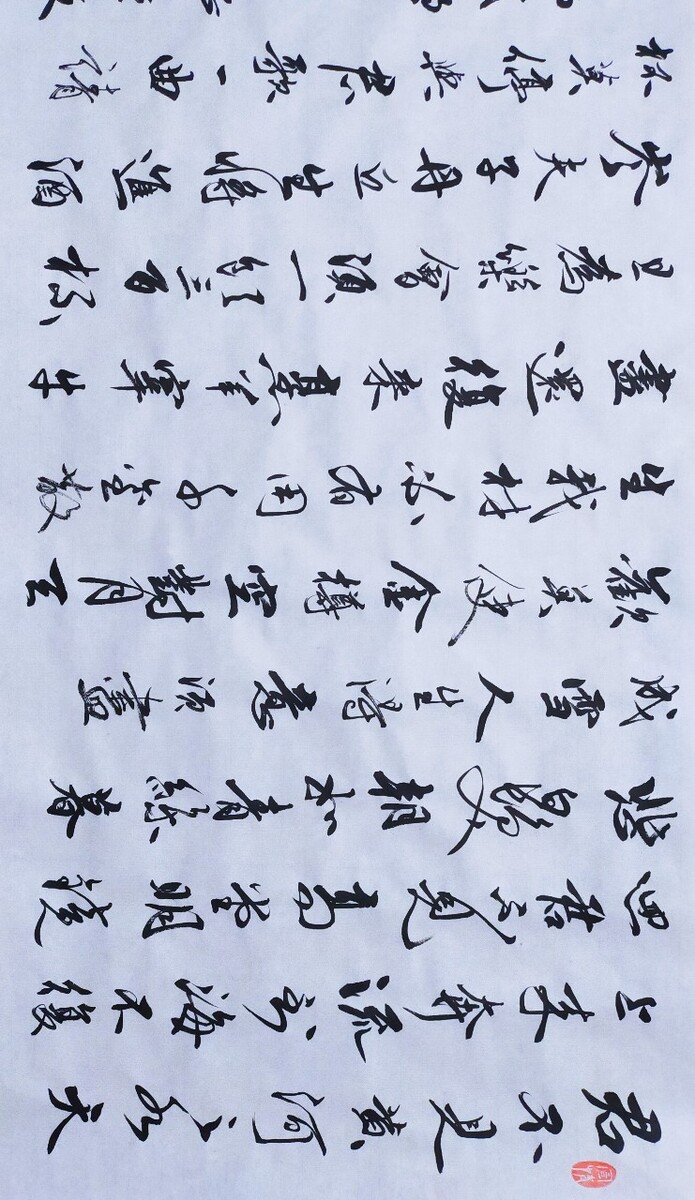 君不見黃河之水天
上來奔流到海不復
迴君不見高堂明鏡
悲白髮朝如青絲暮
成雪人生得意須盡
歡莫使金樽空對月天
生我材必有用千金散
盡還復來烹羊宰牛
且為樂會須一飲三百杯
岑夫子丹丘生將進酒
杯莫停與君歌一曲請